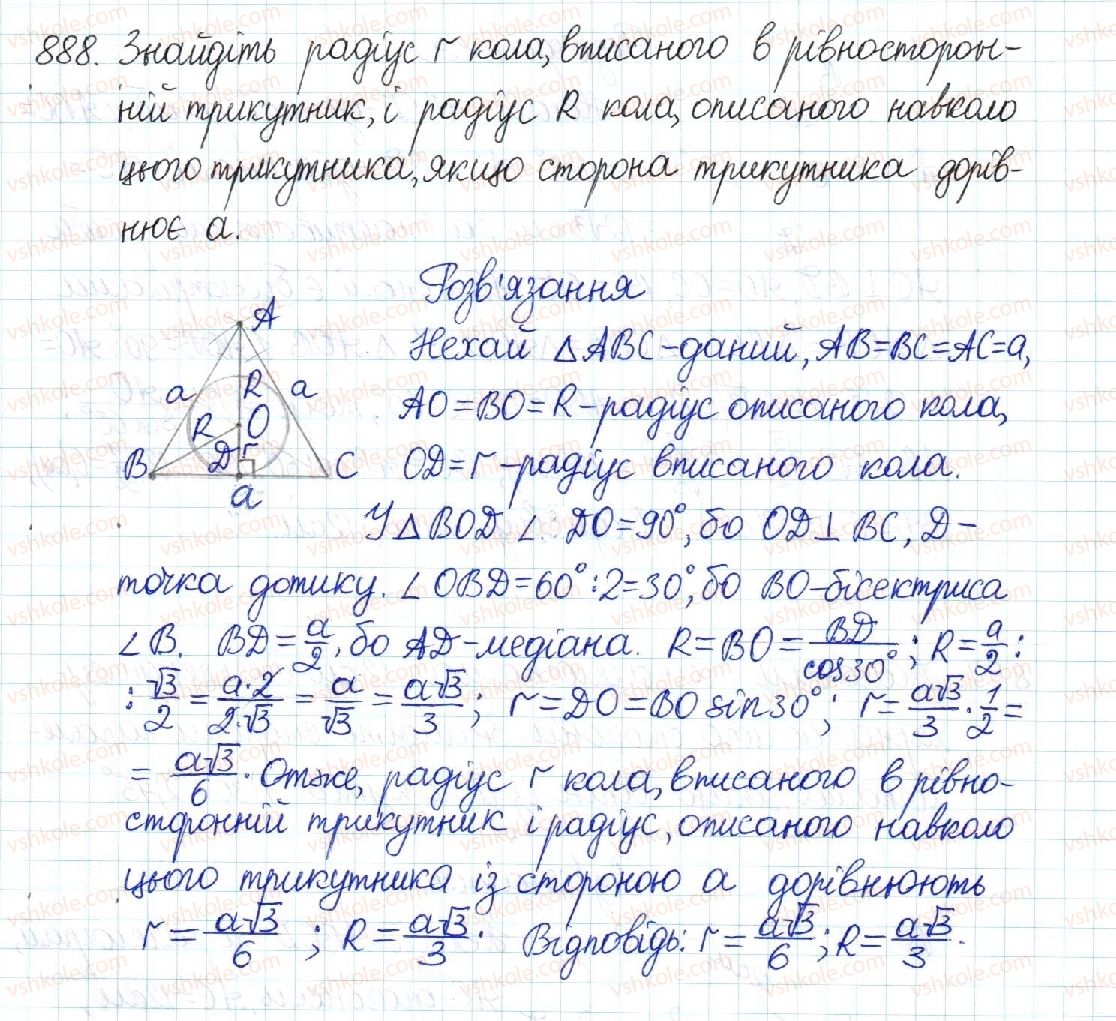 888. Знайдіть радіус r кола, вписаного в рівносторон-
ній трикутник, і радіус R кола, описаного навколо
цього трикутника, якщо сторона трикутника дорів-
нює a.
Розв'язання
A
a R a
R O
B D r C
a
Нехай △ABC-даний, AB=BC=AC=a,
AO=BO=R-радіус описаного кола,
OD=r-радіус вписаного кола.
У △BOD ∠ DO=90°, бо OD⊥BC, D-
точка дотику. ∠OBD=60°:2=30°, бо BO-бісектриса
∠B. BD=a/2, бо AD-медіана. R=BO=BD/cos30°; R=a/2:
:√3/2=a·2/2·√3=a/√3=a√3/3; r=DO=BO sin30°; r=a√3/3·1/2=
=a√3/6. Отже, радіус r кола, вписаного в рівно-
сторонній трикутник і радіус, описаного навколо
цього трикутника із стороною a дорівнюють
r=a√3/6; R=a√3/3. Відповідь: r=a√3/6; R=a√3/3.